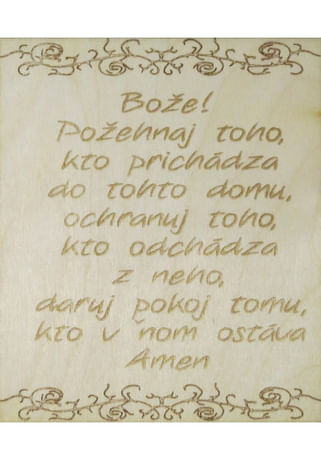 Bože!
Požehnaj toho,
kto prichádza
do tohto domu,
ochranuj toho,
kto odchádza
z neho,
daruj pokoj tomu,
kto v ňom ostáva
Amen